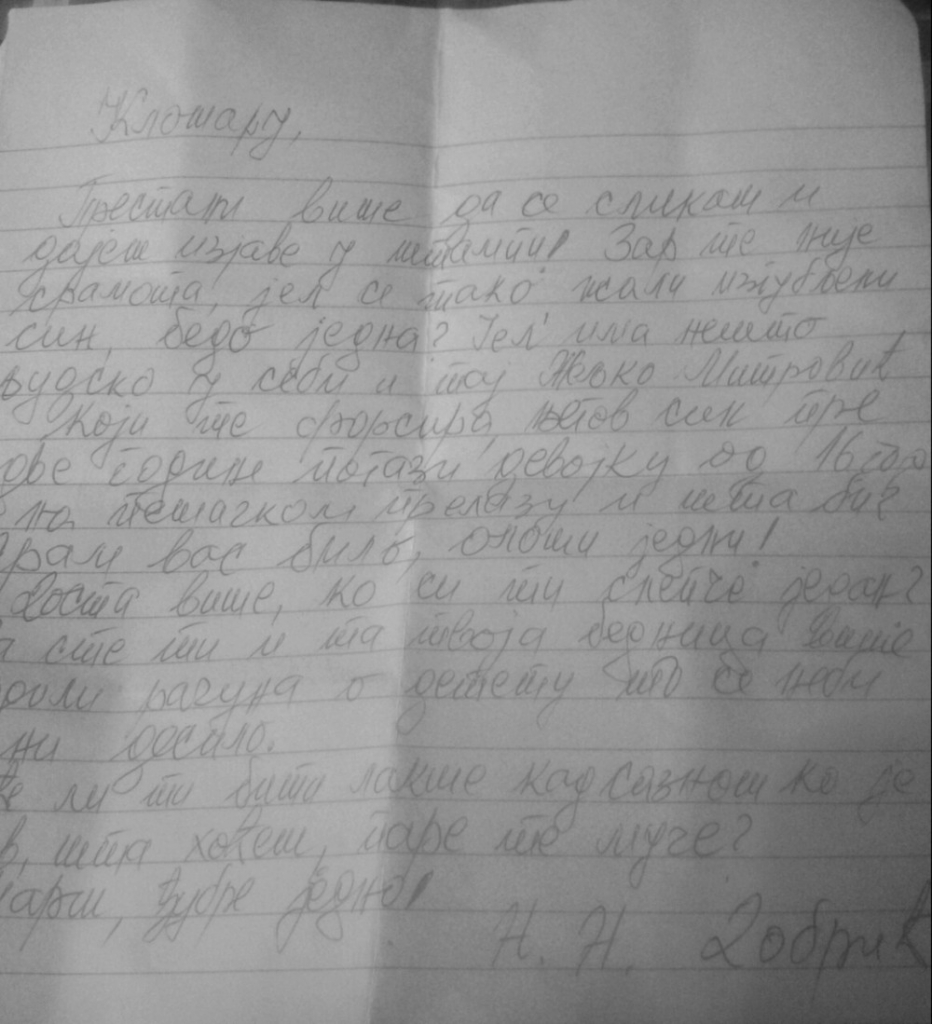 Клошару,
Престани више да се сликаш и
дајеш изјаве у штампи! Зар те није
срамота, јел се тако жали изгубљени
син, бедо једна? Јел' има нешто
људско у себи и тај Жељко Митровић
који те форсира, његов син пре
две године погази девојку од 16 год
на пешачком прелазу и шта би?
Срам вас било, олоши једни!
Доста више, ко си ти један?
сте ти и та твоја бедница више
рачуна о детету то се неби
ни десило.
ли ти бити лакше кад сазнаш ко је
шта хоћеш, паре те муче?
Марш, ђубре једно!
Н. Н. Добрић